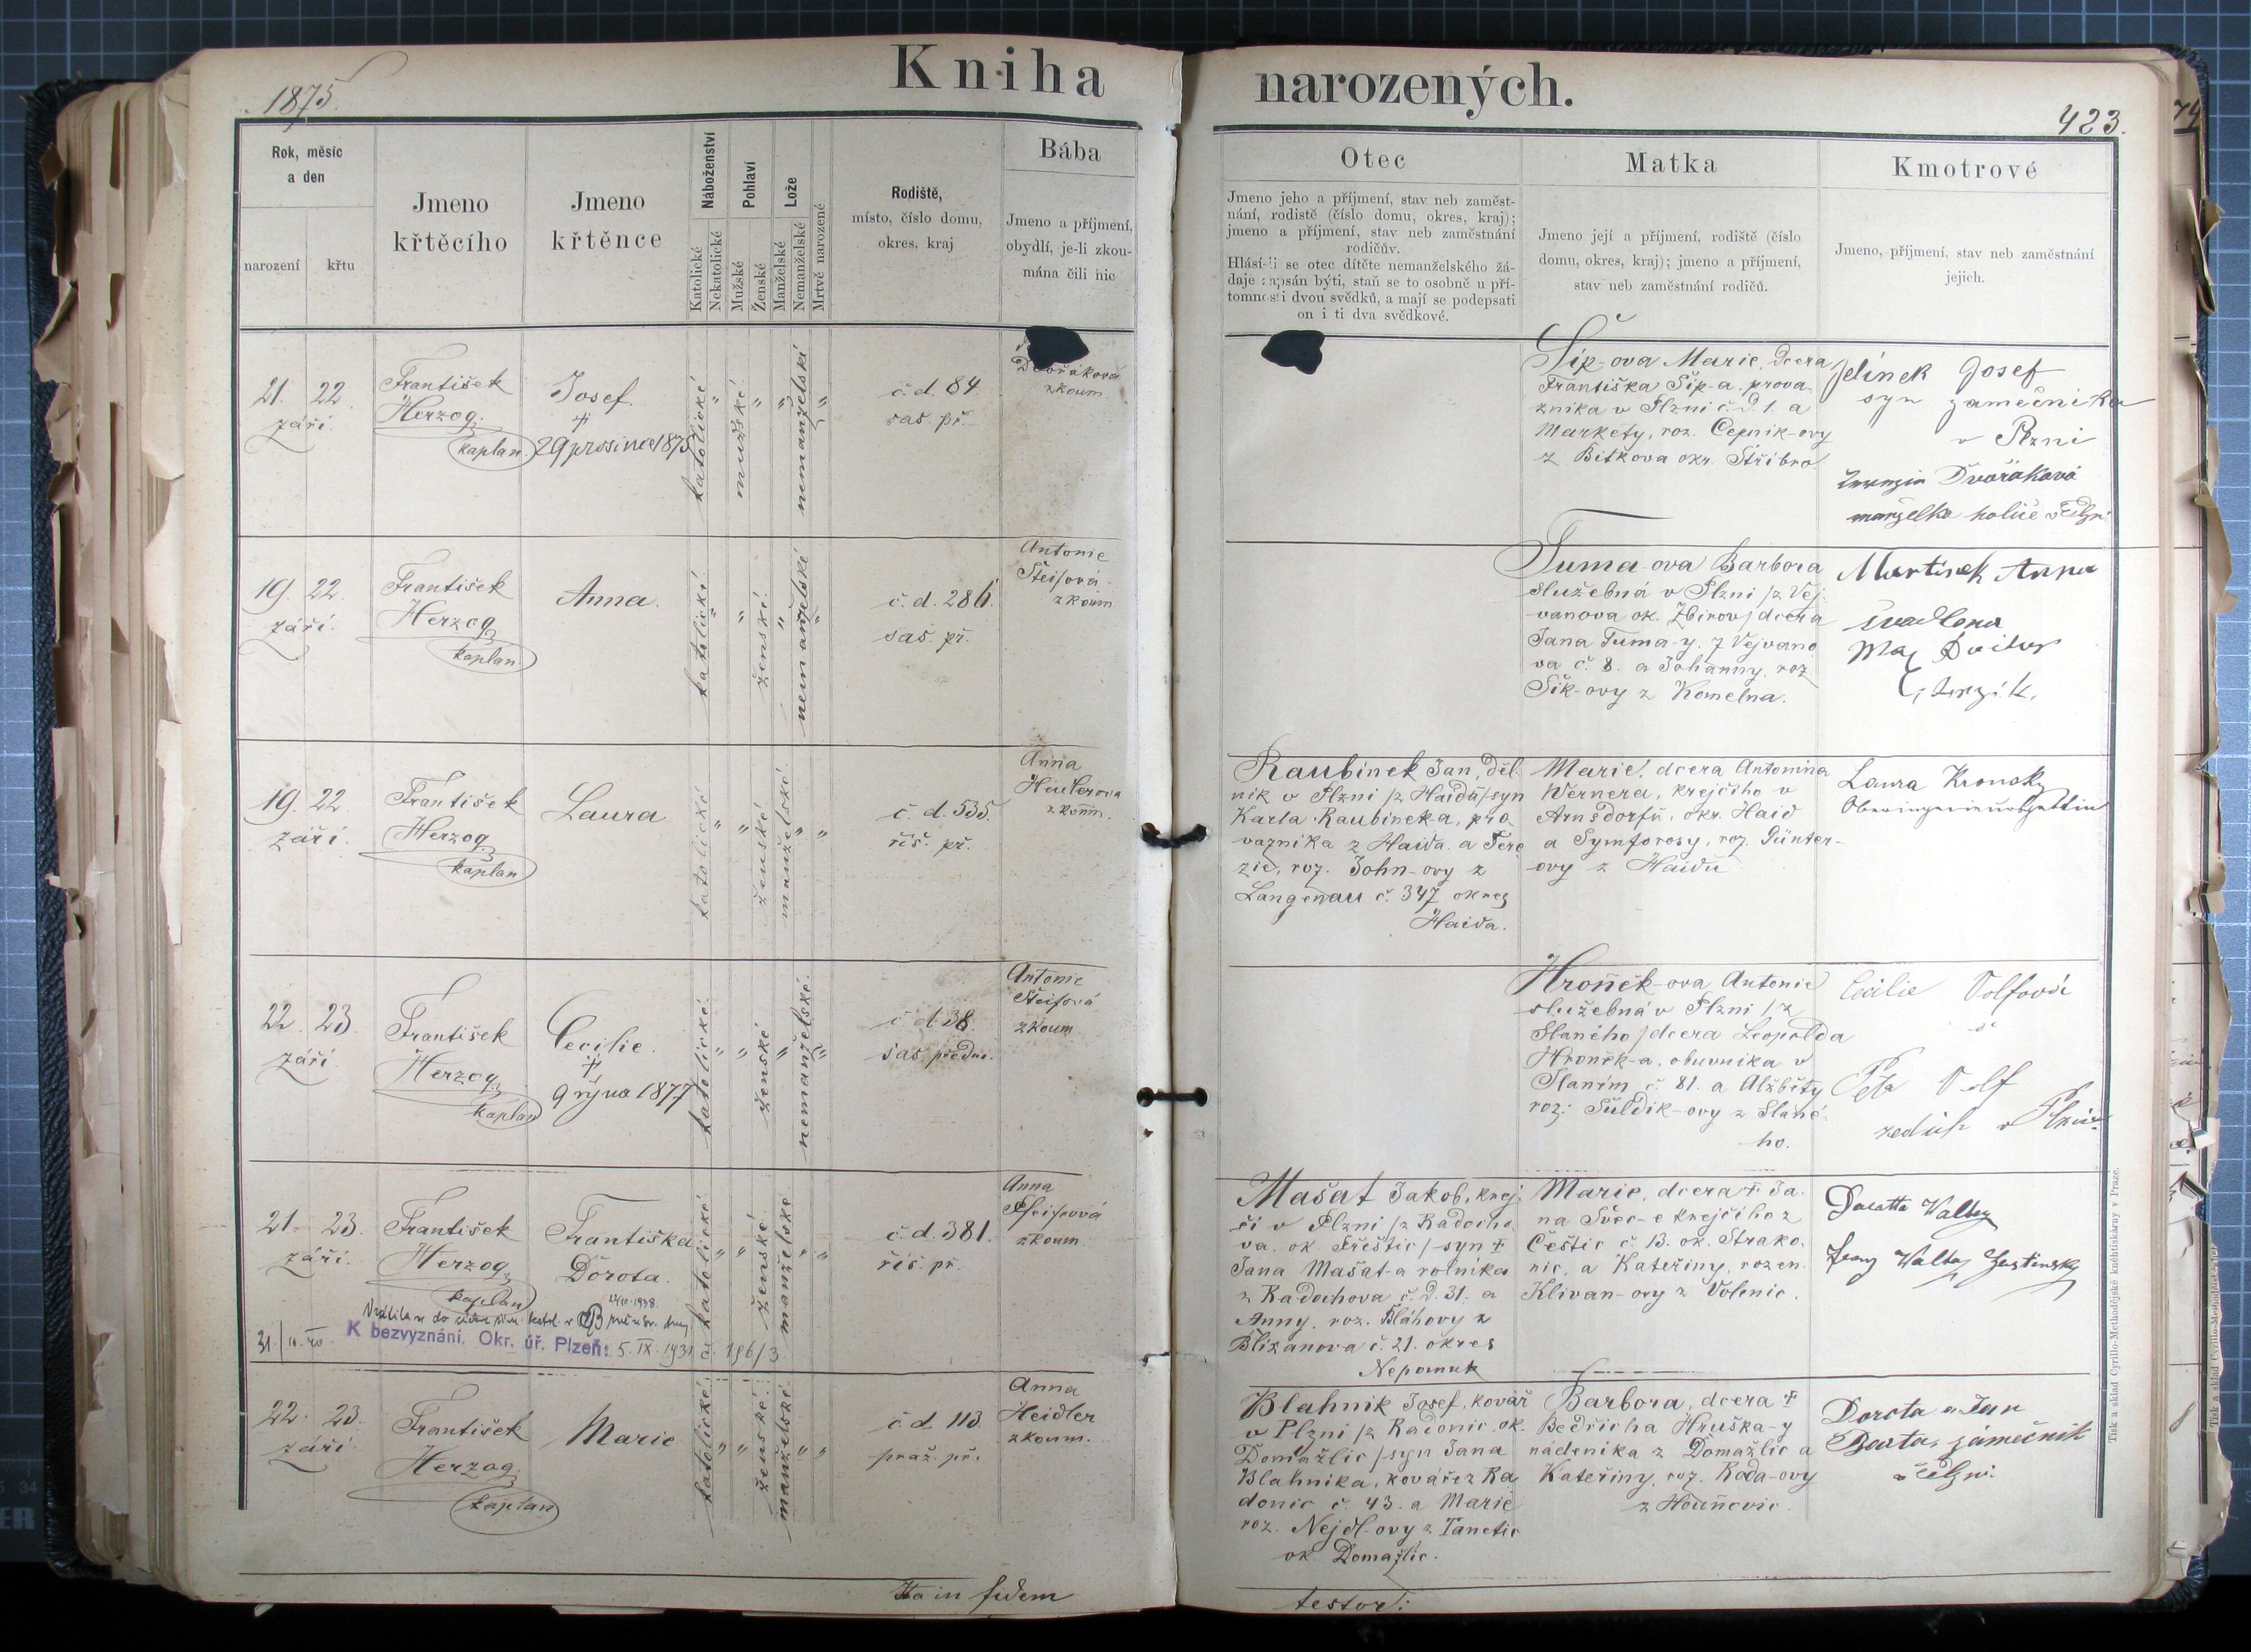 Kniha narozených.
1875.
423.
Rok, měsíc
a den
narození
křtu
Jmeno
křtěcího
Jmeno
křtěnce
Náboženství
Katolické
Nekatolické
Pohlaví
Mužské
Ženské
Lože
Manželské
Nemanželské
Mrtvě narozené
Rodiště,
místo, číslo domu,
okres, kraj
Bába
Jmeno a příjmení,
obydlí, je-li zkou-
mána čili nic
Otec
Jmeno jeho a příjmení, stav neb zaměst-
nání, rodistě (číslo domu, okres, kraj);
jmeno a příjmení, stav neb zaměstnání
rodičův.
Hlásí-li se otec dítěte nemanželského žá-
daje zapsán býti, staň se to osobně u pří-
tomnosti dvou svědků, a mají se podepsati
on i ti dva svědkové.
Matka
Jmeno její a příjmení, rodiště (číslo
domu, okres, kraj); jmeno a příjmení,
stav neb zaměstnání rodičů.
Kmotrové
Jmeno, příjmení, stav neb zaměstnání
jejich.
21. 22.
září.
František
Herzog
kaplan.
Josef.
29 prosince 1875
katolické
mužské
nemanželské
č. d. 84.
sas. př.
Dvořáková
zkoum.
Šíp-ova Marie, dcera
Františka Šíp-a, prova-
zníka v Plzni č. d. 1. a
Markéty, roz. Čepnik-ovy
z Bitkova okr. Stříbro
Jelínek Josef
syn zamečníka
v Plzni
Dvořáková
manželka holiče v Plzni
19. 22.
září.
František
Herzog
kaplan
Anna.
katolické
ženské
nemanželské
č. d. 286.
sas. př.
Antonie
zkoum
Tuma-ova Barbora
služebná v Plzni /z Vej-
vanova ok. Zbirov/ dcera
Jana Tuma-y, z Vejvano
va č. 8. a Johanny, roz.
Šik-ovy z Komelna.
Anna
19. 22.
září.
František
Herzog
kaplan
Laura
katolické
ženské
manželské
č. d. 535.
říš. př.
Anna
zkoum.
Raubinek Jan, děl-
ník v Plzni /z Haidů/ syn
Karla Raubineka, pro
vazníka z Haida. a Tere
zie, roz. John-ovy z
Langenau č. 347 okres
Haida.
Marie, dcera Antonína
Wernera, krejčího v
Arnsdorfů, okr. Haid
a Symforosy, roz. Günter-
ovy z Haidů
Laura
22. 23.
září.
František
Herzog
kaplan
Cecilie.
9 října 1877
katolické
ženské
nemanželské.
č. d. 38.
sas. předm.
Antonie
zkoum
Hroněk-ova Antonie
služebná v Plzni /z
Slaného/ dcera Leopolda
Hroněk-a, obuvníka v
Slaním č. 81. a Alžběty
roz: Šuldik-ovy z Slané-
ho.
Cecilie Volfová
a
Volf
v Plzni
21. 23.
září.
František
Herzog
kaplan
Františka
Dorota.
katolické
ženské
manželské
č. d. 381.
říš. př.
Anna
zkoum
K bezvyznání. Okr. úř. Plzeň: 5. IX. 1931 č. 196/3
Mašat Jakob, krej-
čí v Plzni /z Radocho
va, ok. Přeštic/ syn †
Jana Mašat-a rolníka
z Radochova č. d. 31. a
Anny, roz. Bláhovy z
Blizanova č. 21. okres
Nepomuk
Marie, dcera † Ja-
na Švec-e krejčího z
Čestic č. 13. ok. Strako-
nic, a Kateřiny, rozen.
Klivan-ovy z Volenic.
22. 23.
září.
František
Herzog
kaplan
Marie
katolické
ženské
manželské
č. d. 113
praž. př.
Anna
Heidler
zkoum.
Blahnik Josef, kovář
v Plzni /z Radonic ok.
Domažlic/ syn Jana
Blahnika, kováře z Ra
donic č. 43. a Marie
roz. Nejdl-ovy z Tanetic
ok. Domažlic.
Barbora, dcera †
Bedřicha Hruška-y
nádeníka z Domažlic a
Kateřiny, roz. Rada-ovy
Dorota a Jan
Barta, zámečník
v Plzni
Ita in fidem
testor:
Tisk a sklad Cyrillo-Methodějské knihtiskárny v Praze.